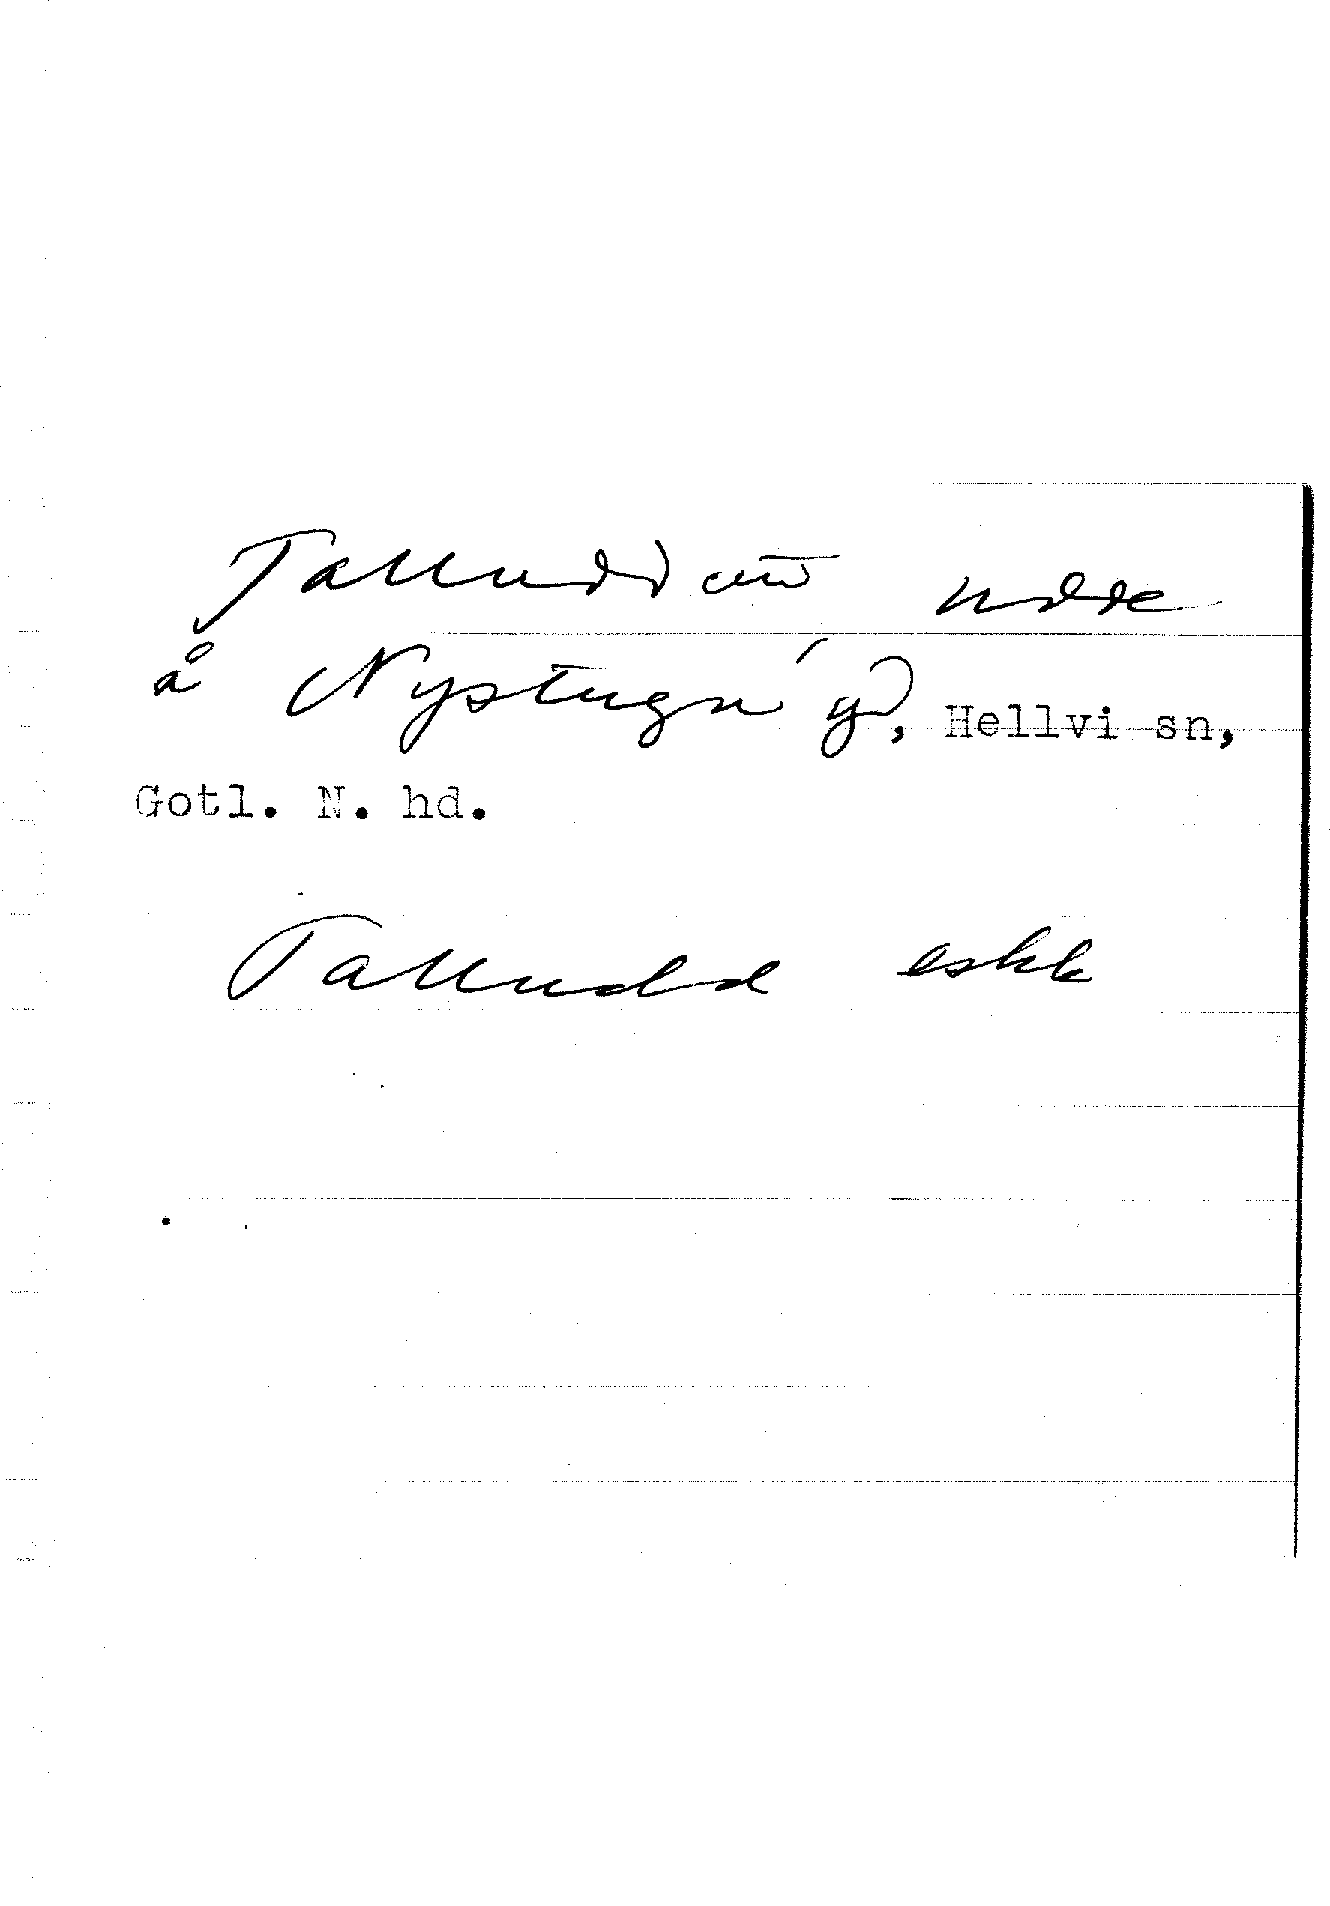 Talludden udde
å Nystugu äg, Hellvi sn,
Gotl. N. hd.
Talludd eskk